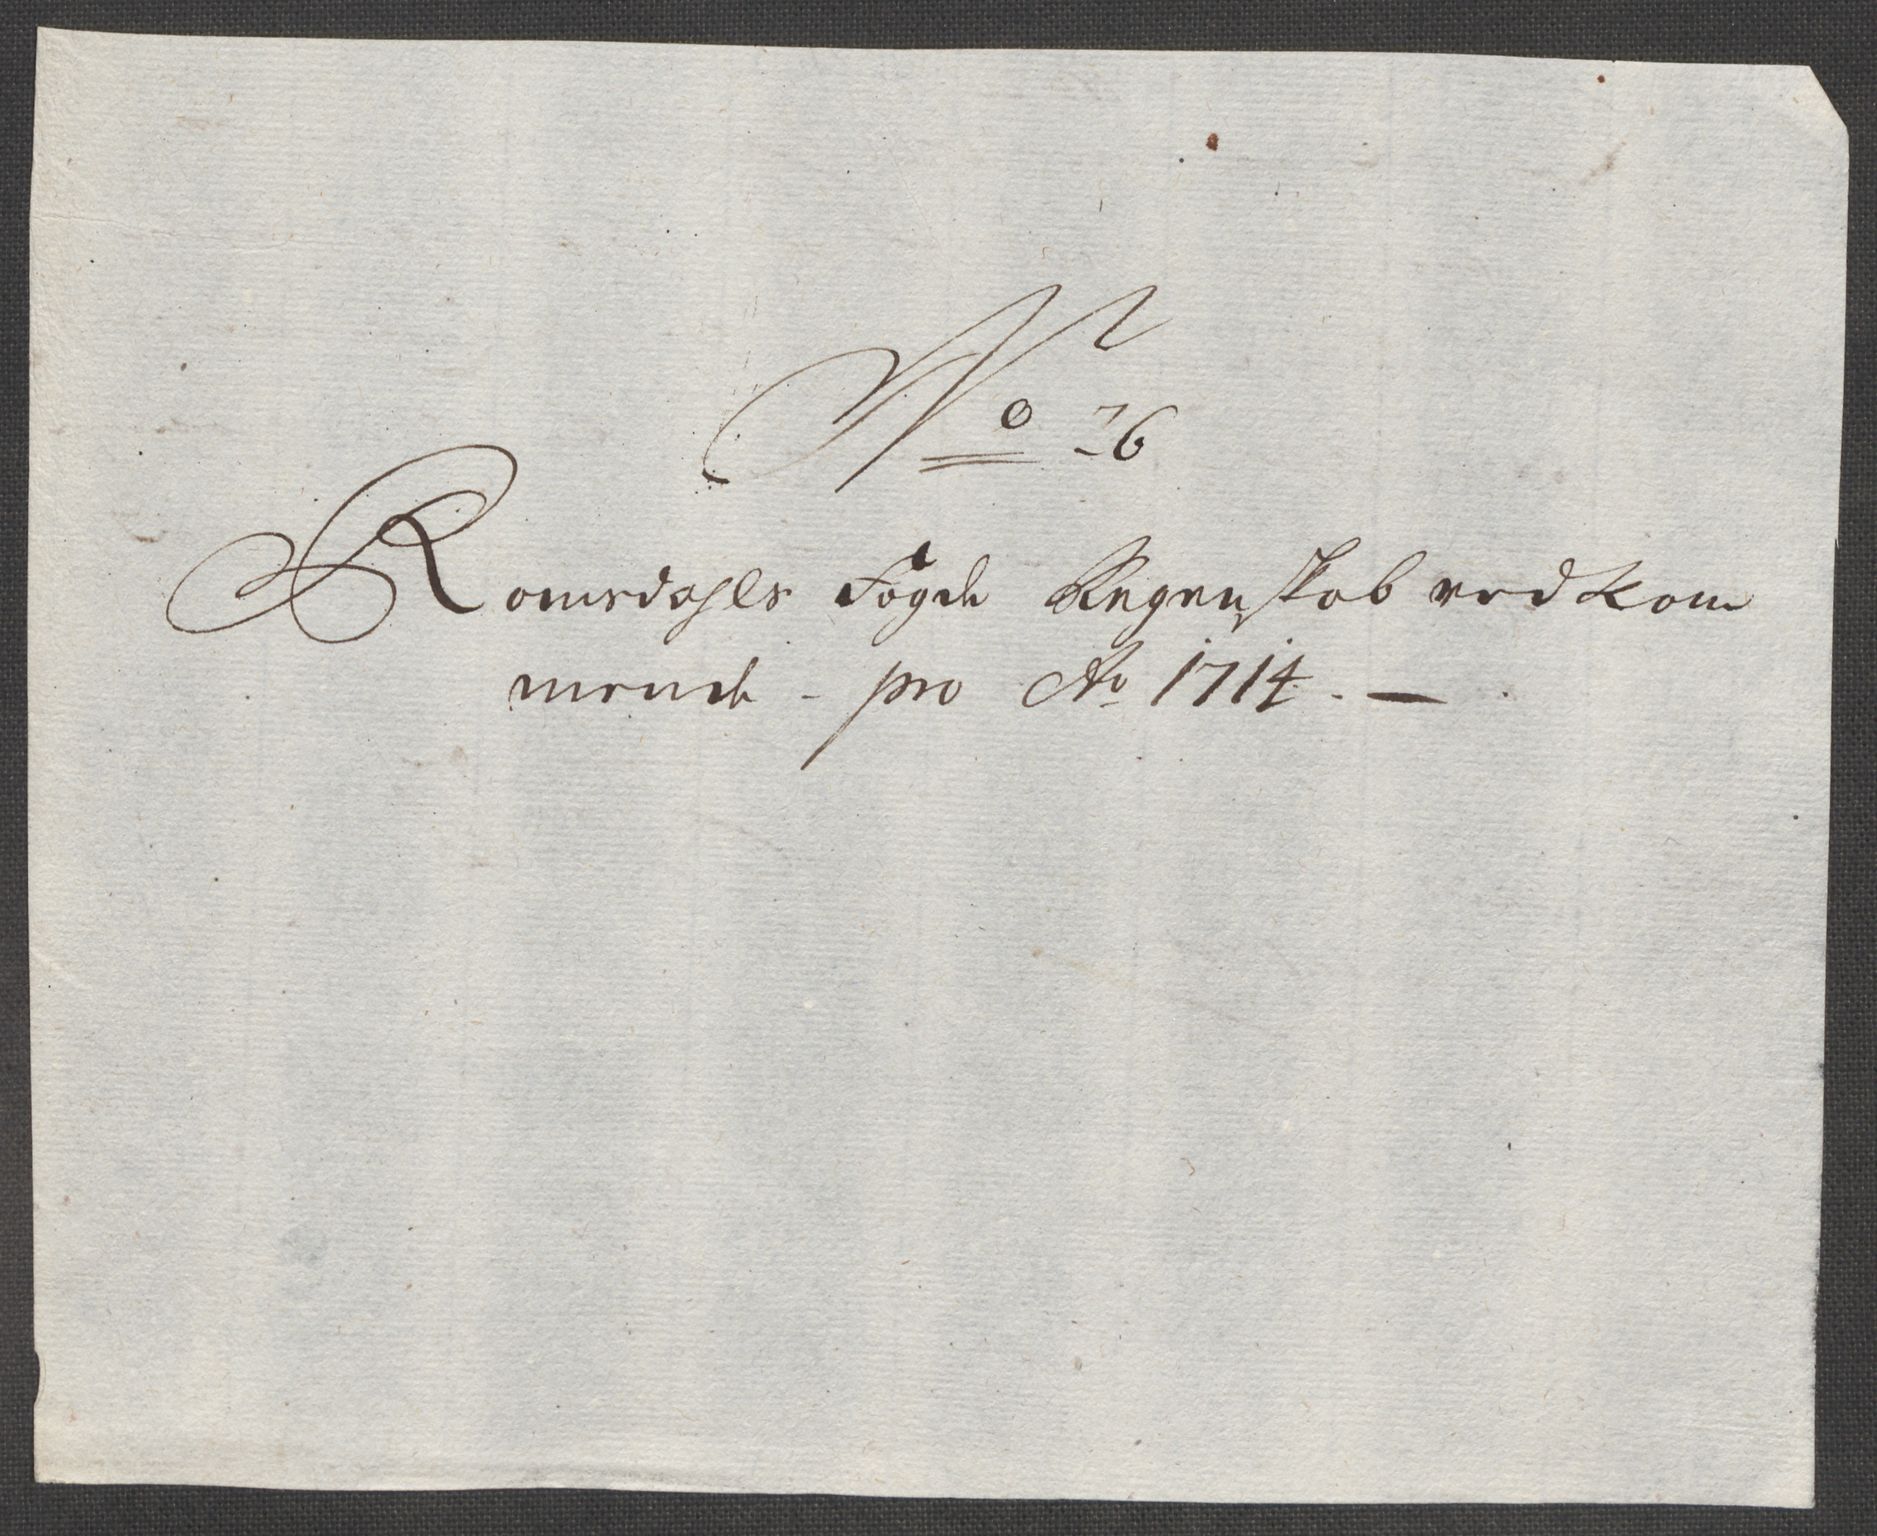 No 16
Romsdahls Fogde Regenskab ved kom
mende - pro Ao 1714. —